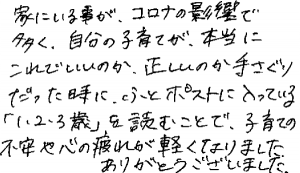 家にいる事が、コロナの影響で
多く、自分の子育てが、本当に
これでいいのか、正しいのか手さぐり
だった時に、そっとポストに入っている
「1・2・3歳」を読むことで、子育ての
不安や心の疲れが軽くなりました
ありがとうございました。